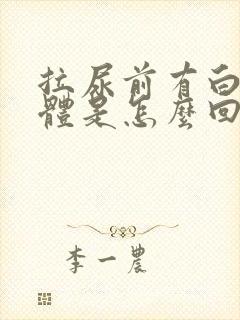 拉尿前有白
體是怎麼回
李一農